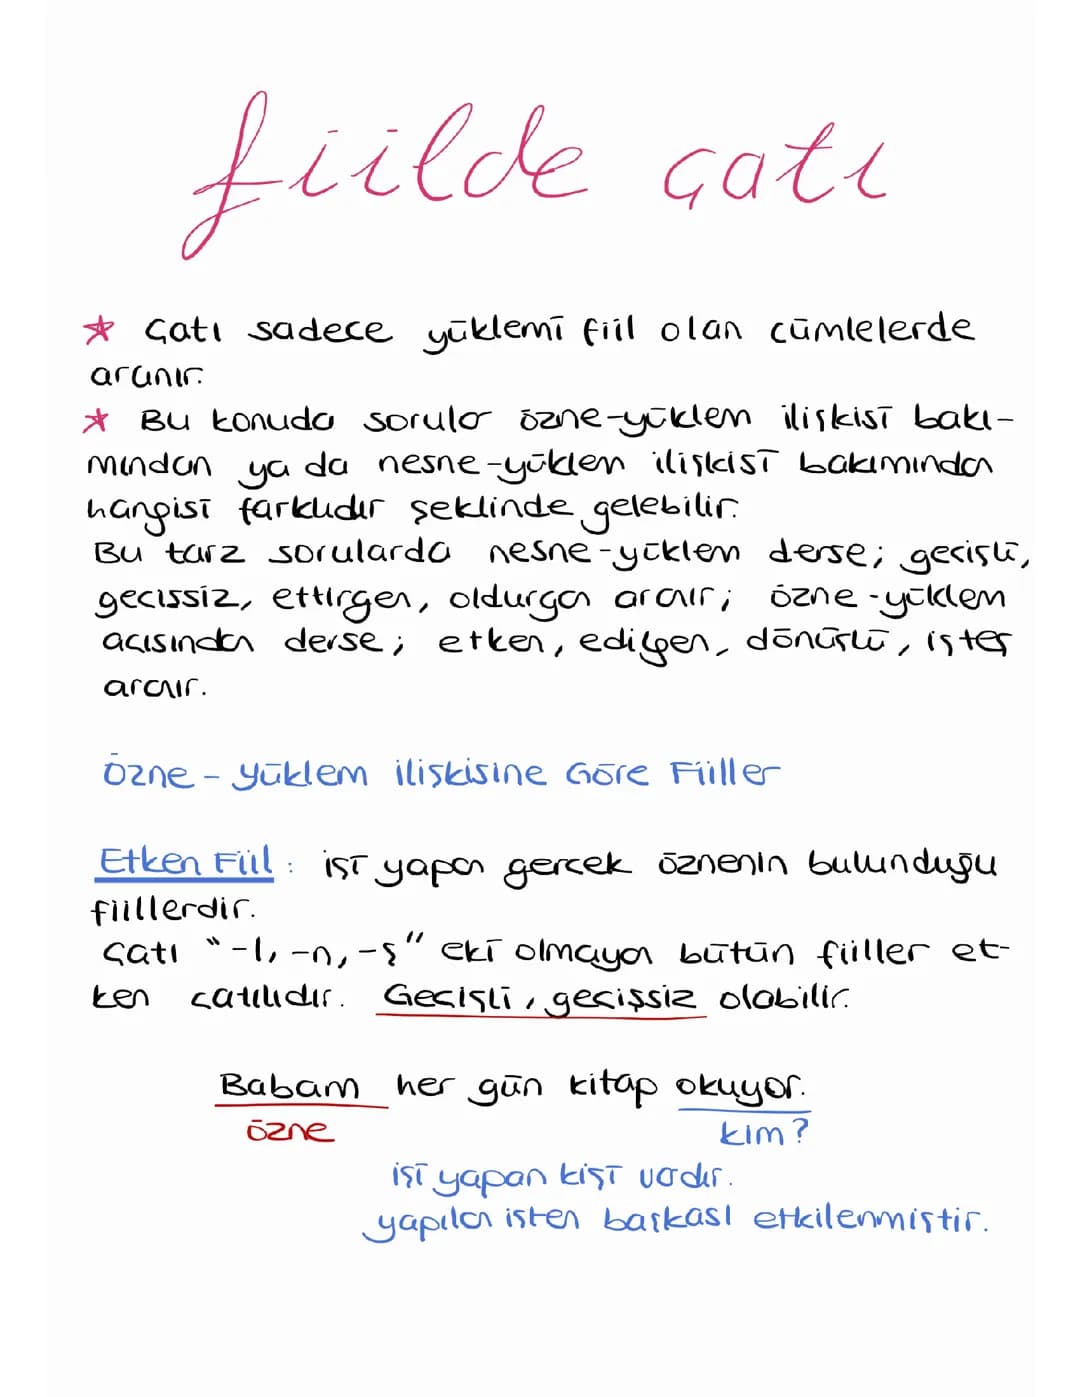 fiilde çatı
★ Çatı sadece yüklemi fiil olan cümlelerde
aranır.
★ Bu konuda sorular özne-yüklem ilişkisi bakı-
mından ya da nesne-yüklem ilişkisi bakımından
hangisi farklıdır şeklinde gelebilir.
Bu tarz sorularda nesne-yüklem derse; geçişli,
geçissiz, ettirgen, oldurgan aranır; özne-yüklem
açısından derse; etken, edilgen, dönüşlü, işteş
aranır.
Özne - yüklem ilişkisine Göre Fiiller
Etken Fiil : işi yapan gerçek öznenin bulunduğu
fiillerdir.
Çatı "-l, -n, -ş" eki olmayan bütün fiiller et-
ken çatılıdır. Geçişli, geçişsiz olabilir.
Babam her gün kitap okuyor.
özne kim?
işi yapan kişi vardır.
yapılan işten başkası etkilenmiştir.